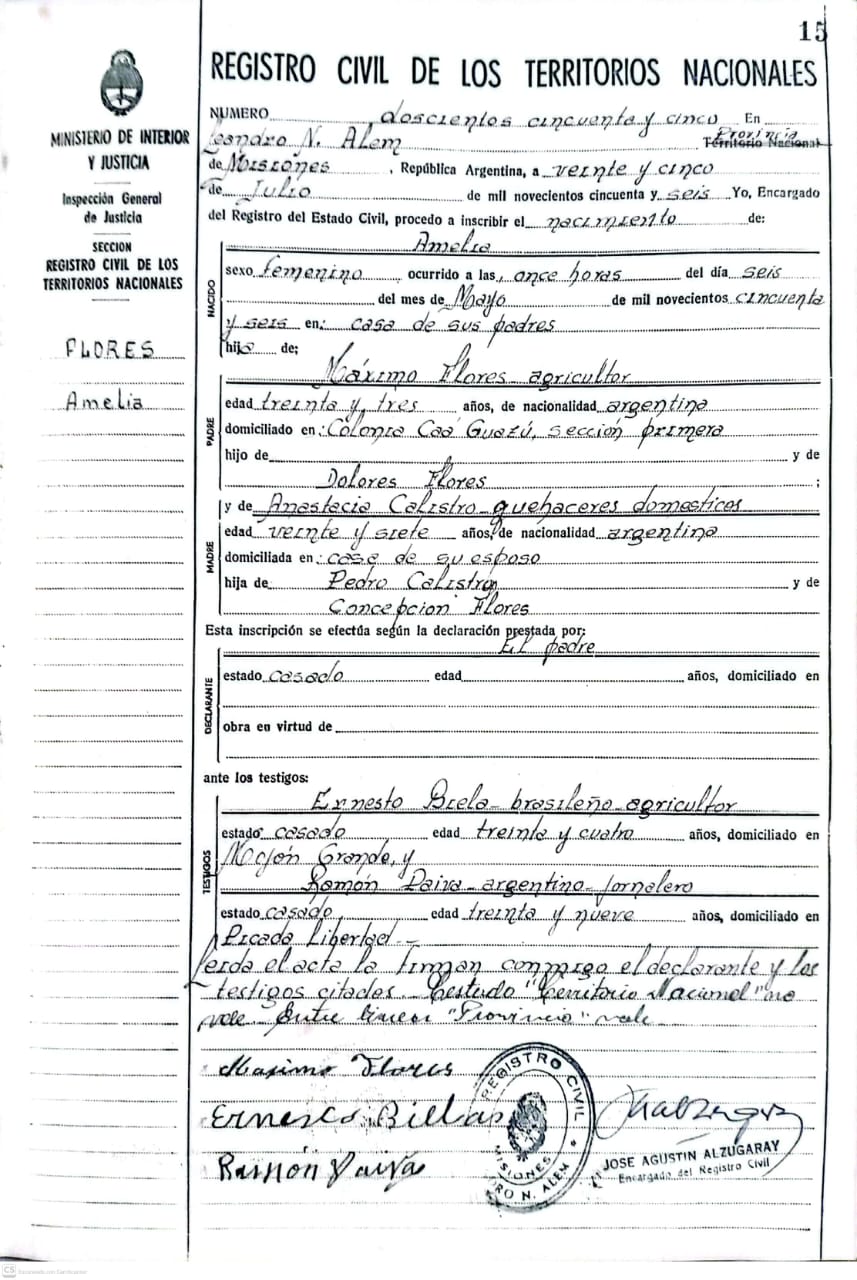 15
REGISTRO CIVIL DE LOS TERRITORIOS NACIONALES
MINISTERIO DE INTERIOR
Y JUSTICIA
Inspección General
de Justicia
SECCION
REGISTRO CIVIL DE LOS
TERRITORIOS NACIONALES
FLORES
Amelia
NUMERO doscientos cincuenta y cinco En
Leandro N. Alem Provincia Territorio Nacional
de Misiones, República Argentina, a veinte y cinco
de Julio de mil novecientos cincuenta y seis Yo, Encargado
del Registro del Estado Civil, procedo a inscribir el nacimiento de:
NACIDO
Amelia
sexo femenino ocurrido a las, once horas del día seis
del mes de Mayo de mil novecientos cincuenta
y seis en: casa de sus padres
hija de;
PADRE
Máximo Flores agricultor
edad treinta y tres años, de nacionalidad argentina
domiciliado en: Colonia Caá Guazú, sección primera
hijo de y de
Dolores Flores ;
MADRE
y de Anastacia Calistro quehaceres domesticos
edad veinte y siete años, de nacionalidad argentina
domiciliada en: casa de su esposo
hija de Pedro Calistro y de
Concepcion Flores
Esta inscripción se efectúa según la declaración prestada por:
DECLARANTE
El padre
estado casado edad años, domiciliado en
obra en virtud de
ante los testigos:
TESTIGOS
Ernesto Biela- brasileño- agricultor
estado casado edad treinta y cuatro años, domiciliado en
Mojón Grande, y
Ramón Paiva- argentino- jornalero
estado casado edad treinta y nueve años, domiciliado en
Picada Libertad.-
Leida el acta la firman conmigo el declarante y los
testigos citados.- Testado "Territorio Nacional" no
vale.- Entre lineas "Provincia" vale.-
Maximo Flores
Ernesto Billas
Ramón Paiva
REGISTRO CIVIL
MISIONES
N. ALEM
JOSE AGUSTIN ALZUGARAY
Encargado del Registro Civil
CS Escaneado con CamScanner